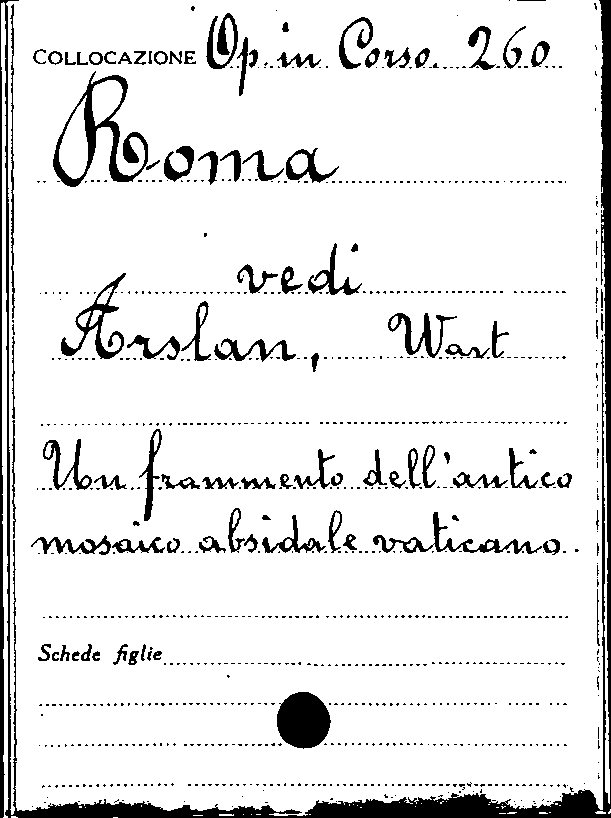 COLLOCAZIONE Op. in Corso. 260
Roma
vedi
Arslan, Wart
Un frammento dell'antico
mosaico absidale vaticano.
Schede figlie